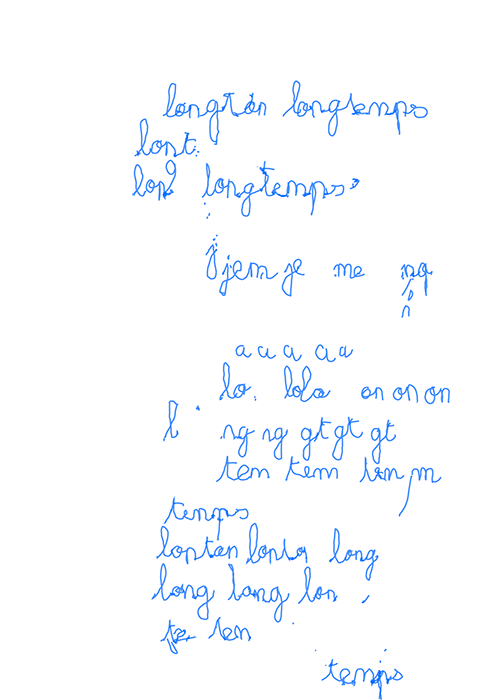 longtan longtemps
lont
lon longtemps
j jem je me ng
n
a a a a a
lo. lola on on on
l ng ng gt gt gt
tem tem m
temps
lontan lonta long
long lang lon
te ten
temps